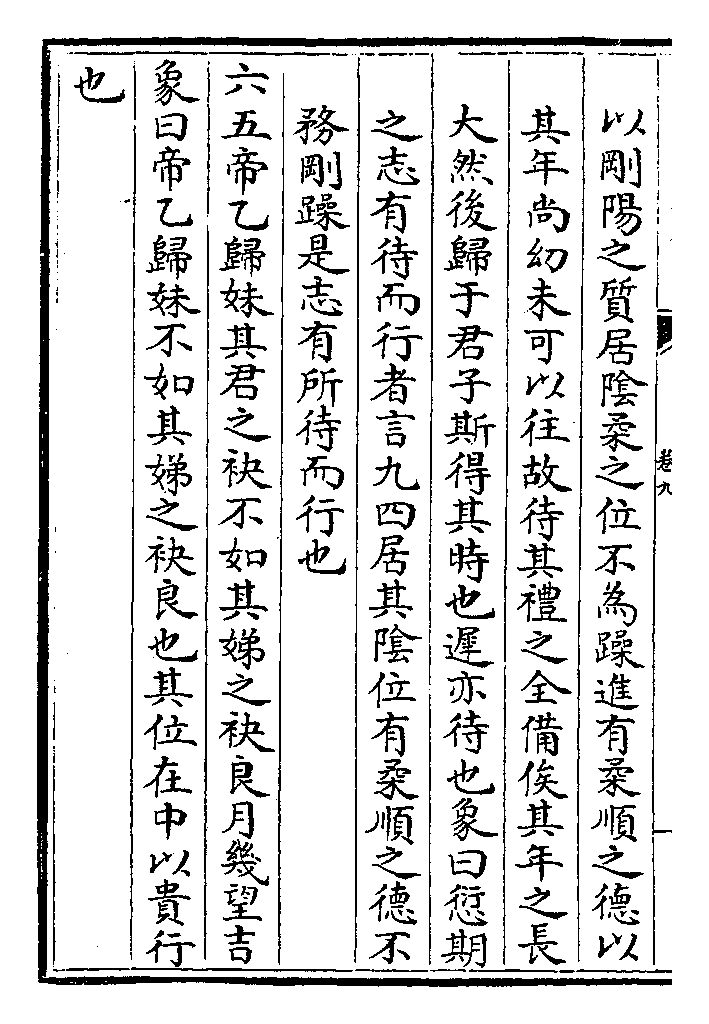 以剛陽之質居陰柔之位不為躁進有柔順之德以
其年尚幼未可以往故待其禮之全備俟其年之長
大然後歸于君子斯得其時也遲亦待也象曰愆期
之志有待而行者言九四居其陰位有柔順之德不
務剛躁是志有所待而行也
六五帝乙歸妹其君之袂不如其娣之袂良月幾望吉
象曰帝乙歸妹不如其娣之袂良也其位在中以貴行
也
卷九